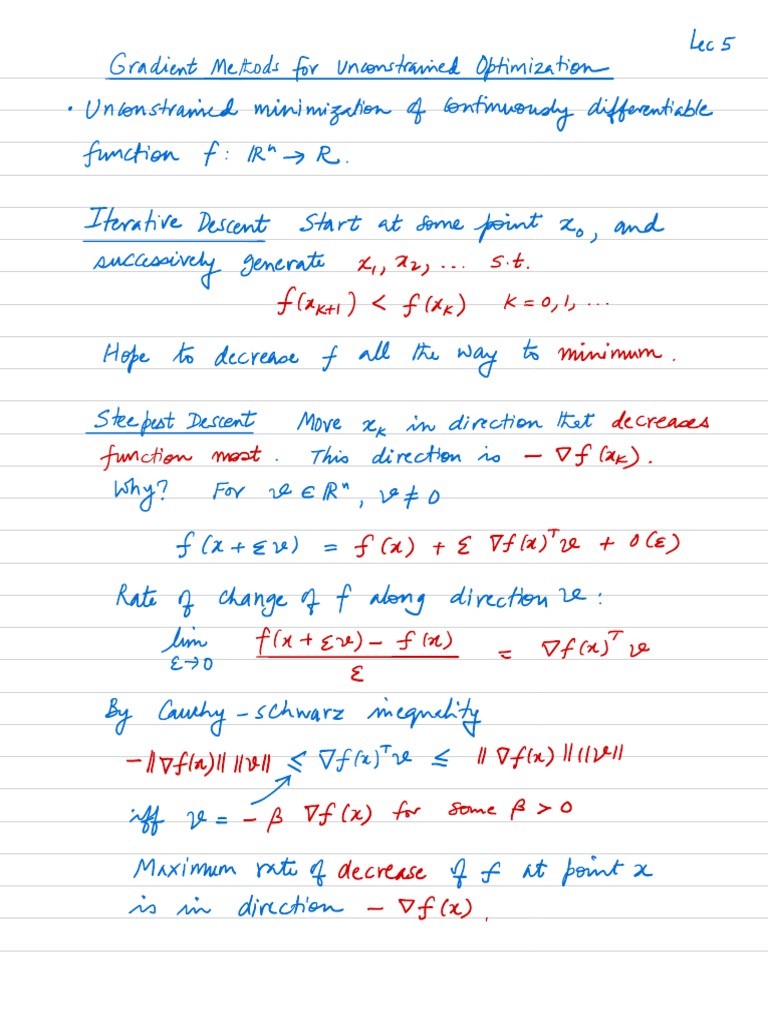 Lec 5
Gradient Methods for Unconstrained Optimization
• Unconstrained minimization of continuously differentiable
function f: ℝⁿ → R.
Iterative Descent Start at some point x₀, and
successively generate x₁, x₂, ... s.t.
f(x_{k+1}) < f(x_k) k = 0, 1, ...
Hope to decrease f all the way to minimum.
Steepest Descent Move x_k in direction that decreases
function most. This direction is - ∇f(x_k).
Why? For v ∈ ℝⁿ, v ≠ 0
f(x + εv) = f(x) + ε ∇f(x)ᵀv + o(ε)
Rate of change of f along direction v:
lim_{ε→0} (f(x + εv) - f(x)) / ε = ∇f(x)ᵀ v
By Cauchy-Schwarz inequality
-‖∇f(x)‖ ‖v‖ ≤ ∇f(x)ᵀv ≤ ‖∇f(x)‖ ‖v‖
iff v = -β ∇f(x) for some β > 0
Maximum rate of decrease of f at point x
is in direction - ∇f(x).